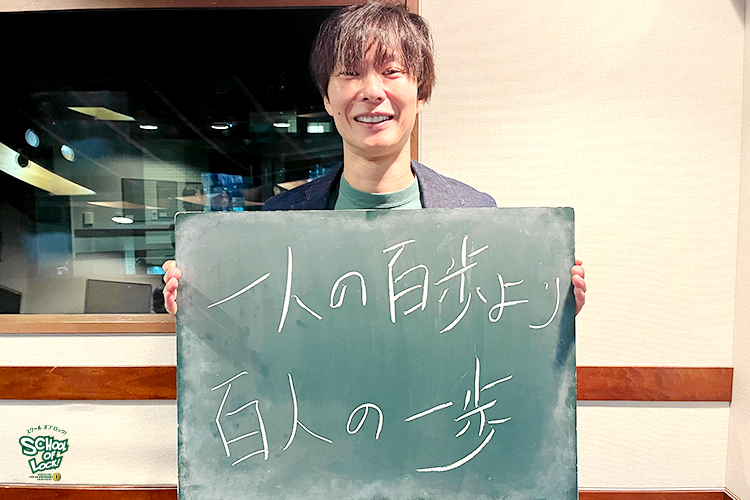 一人の百歩より
百人の一歩
スクール オブ ロック!
SCHOOL
OF
LOCK!